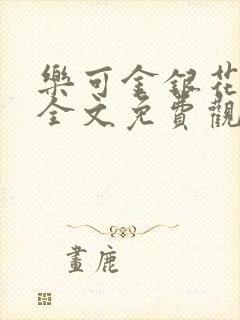 樂可金銀花
全文免費觀
畫鹿